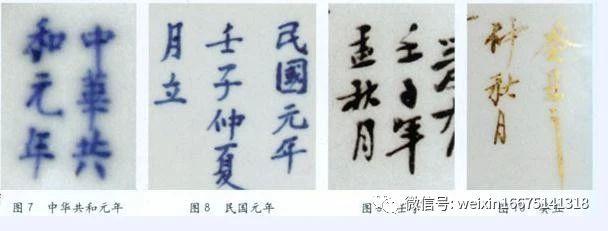 中華共
和元年
民國元年
壬子仲夏
月立
壬子年
孟秋月
癸丑年
仲秋月
图7 中华共和元年
图8 民国元年
微信号: weixin16675141318